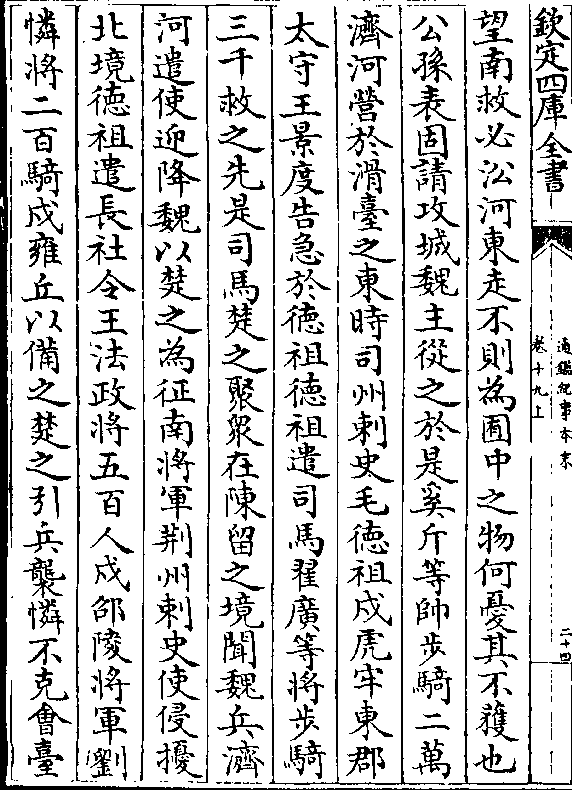 欽定四庫全書
通鑑紀事本末
卷十九上
二十四
望南救必㳂河東走不則為囿中之物何憂其不獲也
公孫表固請攻城魏主從之於是奚斤等帥步騎二萬
濟河營於滑臺之東時司州刺史毛德祖戍虎牢東郡
太守王景度告急於德祖德祖遣司馬翟廣等將步騎
三千救之先是司馬楚之聚衆在陳留之境聞魏兵濟
河遣使迎降魏以楚之為征南將軍荆州刺史使侵擾
北境德祖遣長社令王法政將五百人戍邵陵將軍劉
憐將二百騎戍雍丘以備之楚之引兵襲憐不克會臺